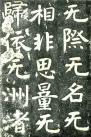 无際无名无
相非思量无
歸依无洲者